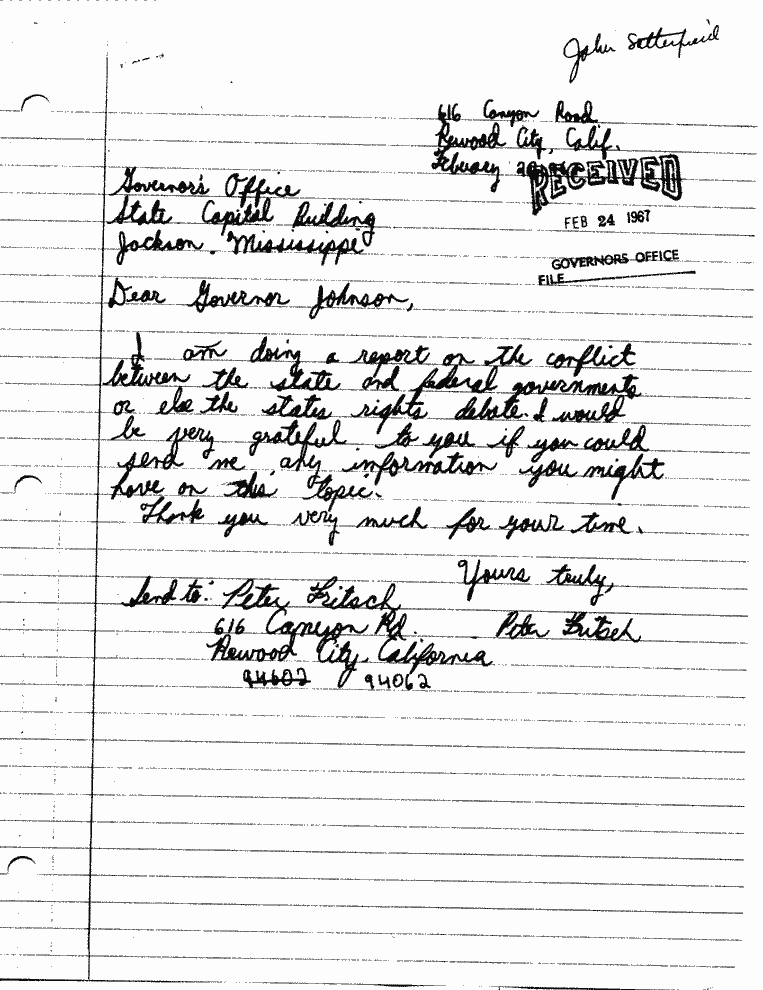 John Satterfield
616 Canyon Road
Rewood City, Calif.
February
RECEIVED
FEB 24 1967
GOVERNORS OFFICE
FILE
Governor's Office
State Capital Building
Jackson, Mississippi
Dear Governor Johnson,
I am doing a report on the conflict
between the state and federal governments
or else the states rights debate. I would
be very grateful to you if you could
send me any information you might
have on this topic.
Thank you very much for your time.
Yours truly,
Send to: Peter Fritsch
616 Canyon Rd.
Peter Fritsch
Rewood City, California
94602 94062